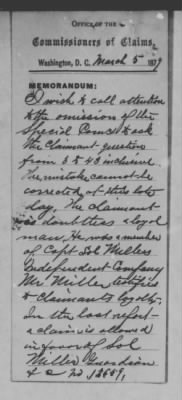 OFFICE OF THE
Commissioners of Claims,
Washington, D. C. March 5 1879
MEMORANDUM:
I wish to call attention
to the omission of the
Special Comr to ask
the Claimant questions
from 5 to 43 inclusive.
The mistake cannot be
corrected at this late
day. The claimant
is doubtless a loyal
man. He was a member
of Capt Sol Millers
Independent Company
Mr Miller testifies
to claimants loyalty.
In the last report
a claim is allowed
in favor of Sol
Miller Guardian
&c No 12689,